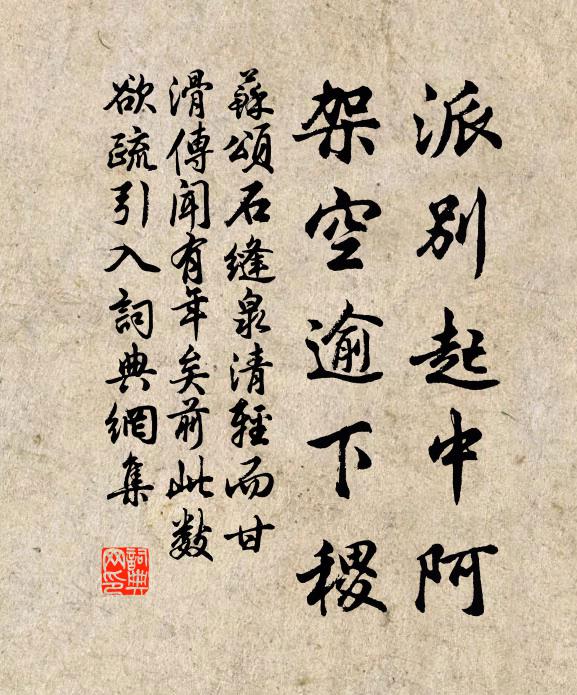 派別起中阿
架空逾下稷
蘇頌石縫泉清輕而甘
滑傳聞有年矣前此數
欲疏引入詞典網集
詞典网印